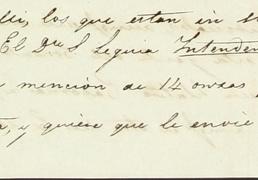 lli, los que estan in
El Dr. S. Seguia Intenden
mención de 14 onzas
, y quiere que le envie